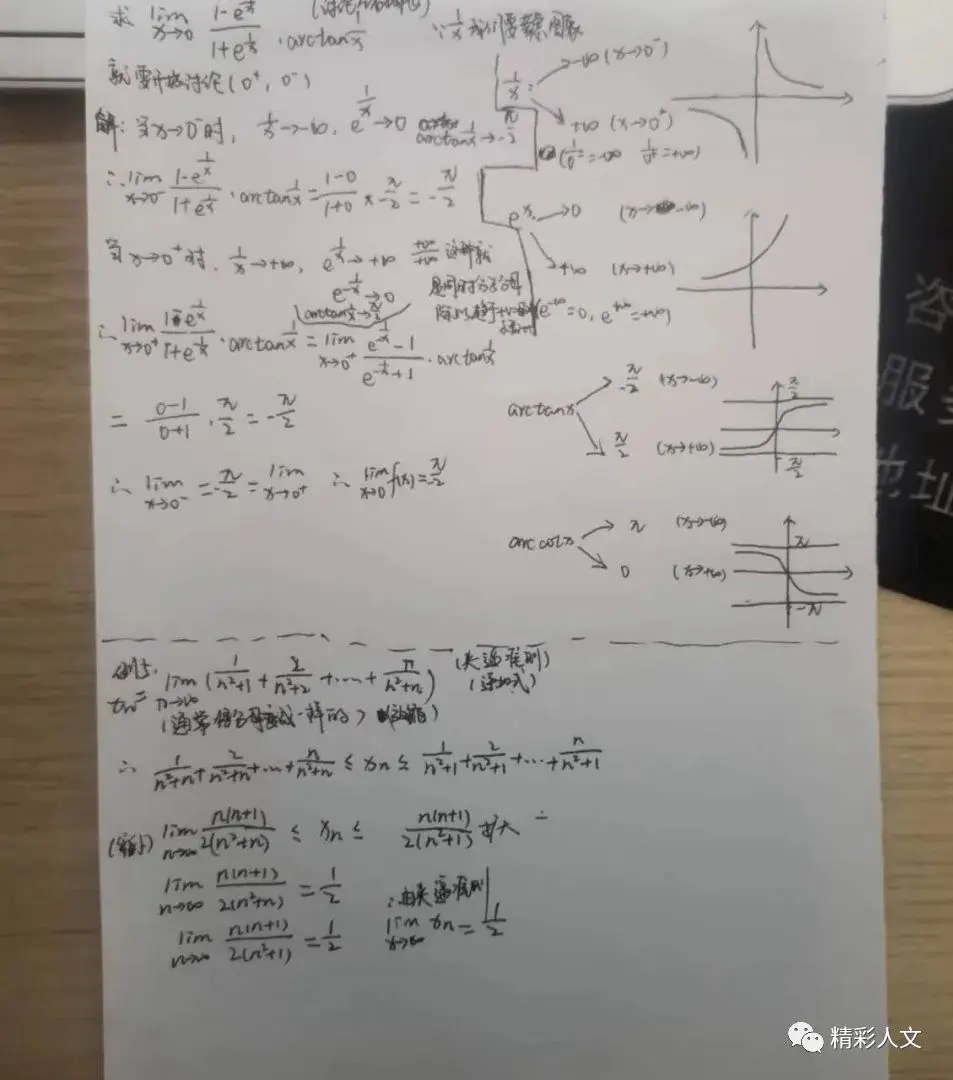 求 lim x→0 (1-e^(1/x))/(1+e^(1/x)) · arctan 1/x
∵ 1/x 我们要 图象
就要开始讨论(0⁺, 0⁻)
解: 当x→0⁻时, 1/x→-∞, e^(1/x)→0 arctan 1/x→-π/2
∴ lim x→0⁻ (1-e^(1/x))/(1+e^(1/x)) · arctan 1/x = (1-0)/(1+0) × -π/2 = -π/2
当x→0⁺时, 1/x→+∞, e^(1/x)→+∞ +∞/+∞ 这种就
e^(-1/x)→0 是同时分子分母
arctan 1/x→π/2 除以趋于+∞
∴ lim x→0⁺ (1-e^(1/x))/(1+e^(1/x)) · arctan 1/x = lim x→0⁺ (e^(-1/x)-1)/(e^(-1/x)+1) · arctan 1/x
= (0-1)/(0+1) · π/2 = -π/2
∴ lim x→0⁻ = -π/2 = lim x→0⁺ ∴ lim x→0 f(x) = -π/2
1/x: -∞ (x→0⁻)
+∞ (x→0⁺)
(1/0⁻=-∞ 1/0⁺=+∞)
e^x: →0 (x→-∞)
+∞ (x→+∞)
(e^(-∞)=0, e^(+∞)=+∞)
arctanx -π/2 (x→-∞)
π/2 (x→+∞)
π/2
-π/2
arccotx π (x→-∞)
0 (x→+∞)
π
-π
例5. xn= lim n→∞ (1/(n²+1) + 2/(n²+2) + ... + n/(n²+n)) (夹逼准则)
(通常 分母变成一样的)
∴ 1/(n²+n) + 2/(n²+n) + ... + n/(n²+n) ≤ xn ≤ 1/(n²+1) + 2/(n²+1) + ... + n/(n²+1)
lim n→∞ n(n+1)/2(n²+n) ≤ xn ≤ n(n+1)/2(n²+1) 扩大
lim n→∞ n(n+1)/2(n²+n) = 1/2 ∴由夹逼准则
lim n→∞ n(n+1)/2(n²+1) = 1/2 lim x→∞ xn = 1/2
咨
服
地址
精彩人文